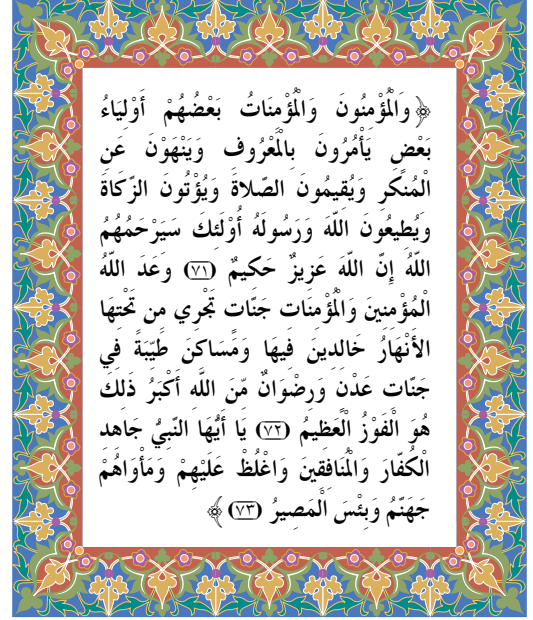 ﴿ وَالْمُؤْمِنُونَ وَالْمُؤْمِنَاتُ بَعْضُهُمْ أَوْلِيَاءُ
بَعْضٍ يَأْمُرُونَ بِالْمَعْرُوفِ وَيَنْهَوْنَ عَنِ
الْمُنكَرِ وَيُقِيمُونَ الصّلاةَ وَيُؤْتُونَ الزّكَاةَ
وَيُطِيعُونَ اللّهَ وَرَسُولَهُ أُوْلَئِكَ سَيَرْحَمُهُمُ
اللّهُ إِنّ اللّهَ عَزِيزٌ حَكِيمٌ (٧١) وَعَدَ اللّهُ
الْمُؤْمِنِينَ وَالْمُؤْمِنَاتِ جَنّاتٍ تَجْرِي مِن تَحْتِهَا
الأَنْهَارُ خَالِدِينَ فِيهَا وَمَسَاكِنَ طَيّبَةً فِي
جَنّاتِ عَدْنٍ وَرِضْوَانٌ مّنَ اللّهِ أَكْبَرُ ذَلِكَ
هُوَ الْفَوْزُ الْعَظِيمُ (٧٢) يَا أَيّهَا النّبِيُّ جَاهِدِ
الْكُفّارَ وَالْمُنَافِقِينَ وَاغْلُظْ عَلَيْهِمْ وَمَأْوَاهُمْ
جَهَنّمُ وَبِئْسَ الْمَصِيرُ (٧٣) ﴾